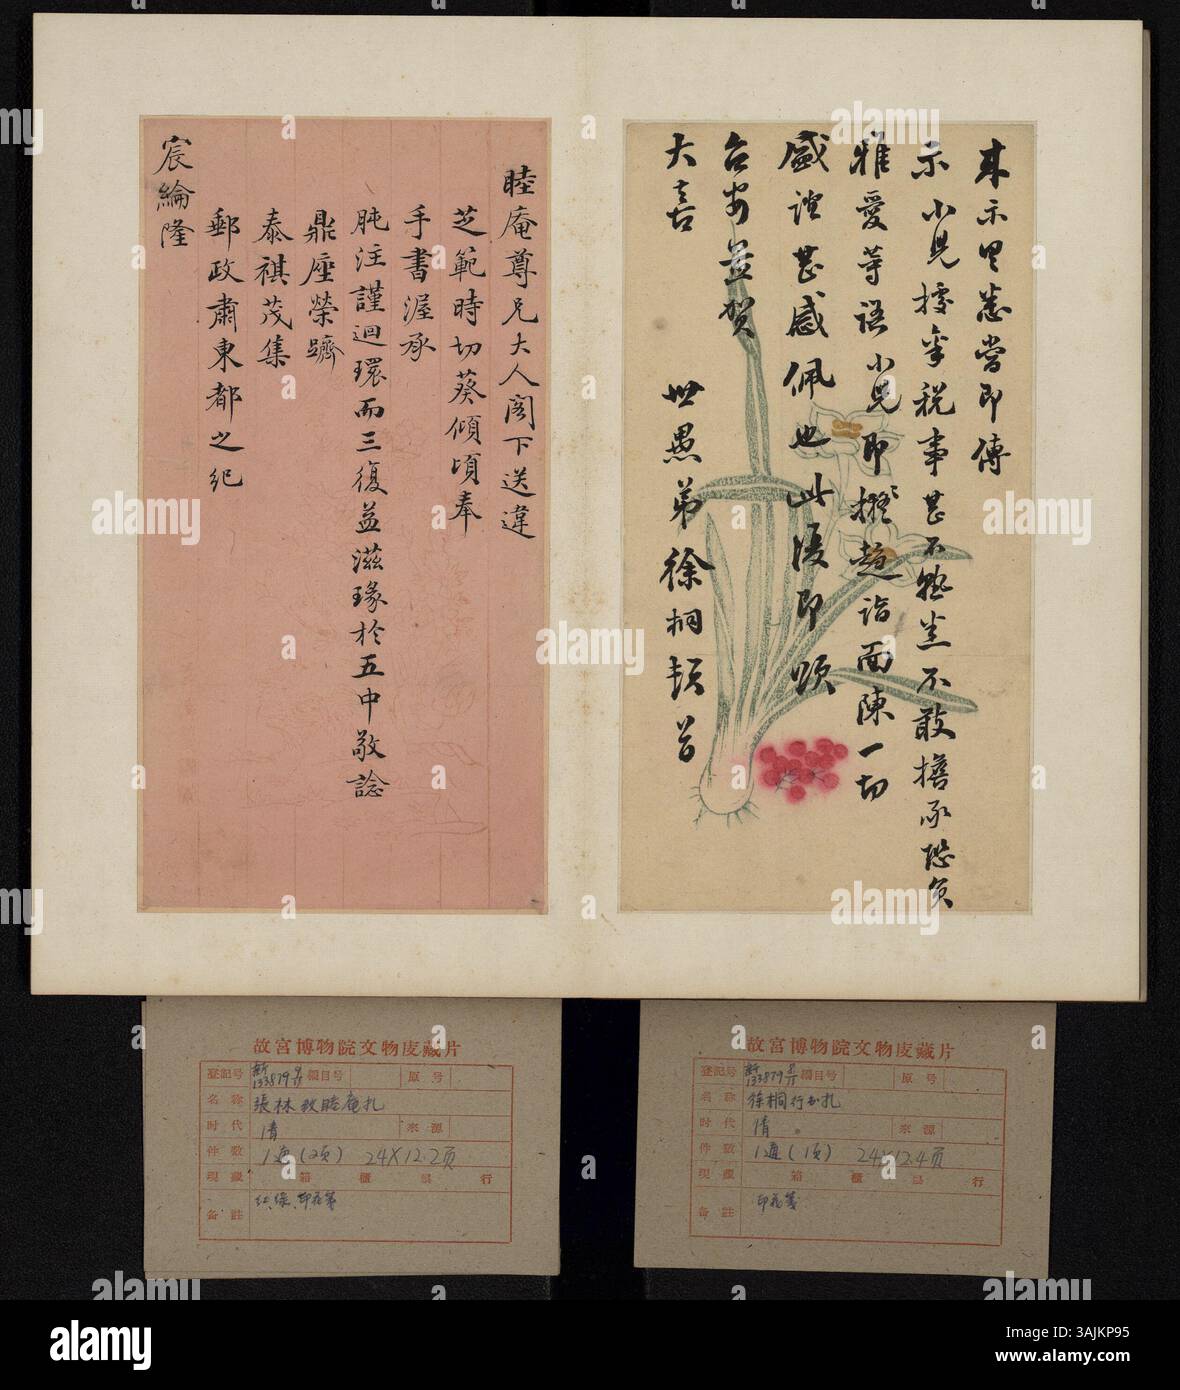 來示具悉當即傳
示小兒據辛稅事甚不熟悉不敢擔承恐負
雅愛等語小兒即擬趨詣面陳一切
盛誼甚感佩也此復即頌
台安並賀
大喜
世愚弟徐桐頓首
睦庵尊兄大人閣下送違
芝範時切葵傾頃奉
手書渥承
肫注謹迴環而三復益滋瑑於五中敬諗
鼎座榮躋
泰祺茂集
郵政肅東都之紀
宸綸隆
故宮博物院文物庋藏片
登記号 新133879 9/15 編目号 原号
名称 張林致睦庵札
时代 清 来源
件数 1通(2页) 24×12.2页
現藏 箱 櫃 层 行
备註 红、绿、印花笺
故宮博物院文物庋藏片
登記号 新133879 8/15 編目号 原号
名称 徐桐行書札
时代 清 来源
件数 1通(1页) 24×12.4页
現藏 箱 櫃 层 行
备註 印花笺
alamy
a
alamy
Image ID: 3AJKP95
www.alamy.com